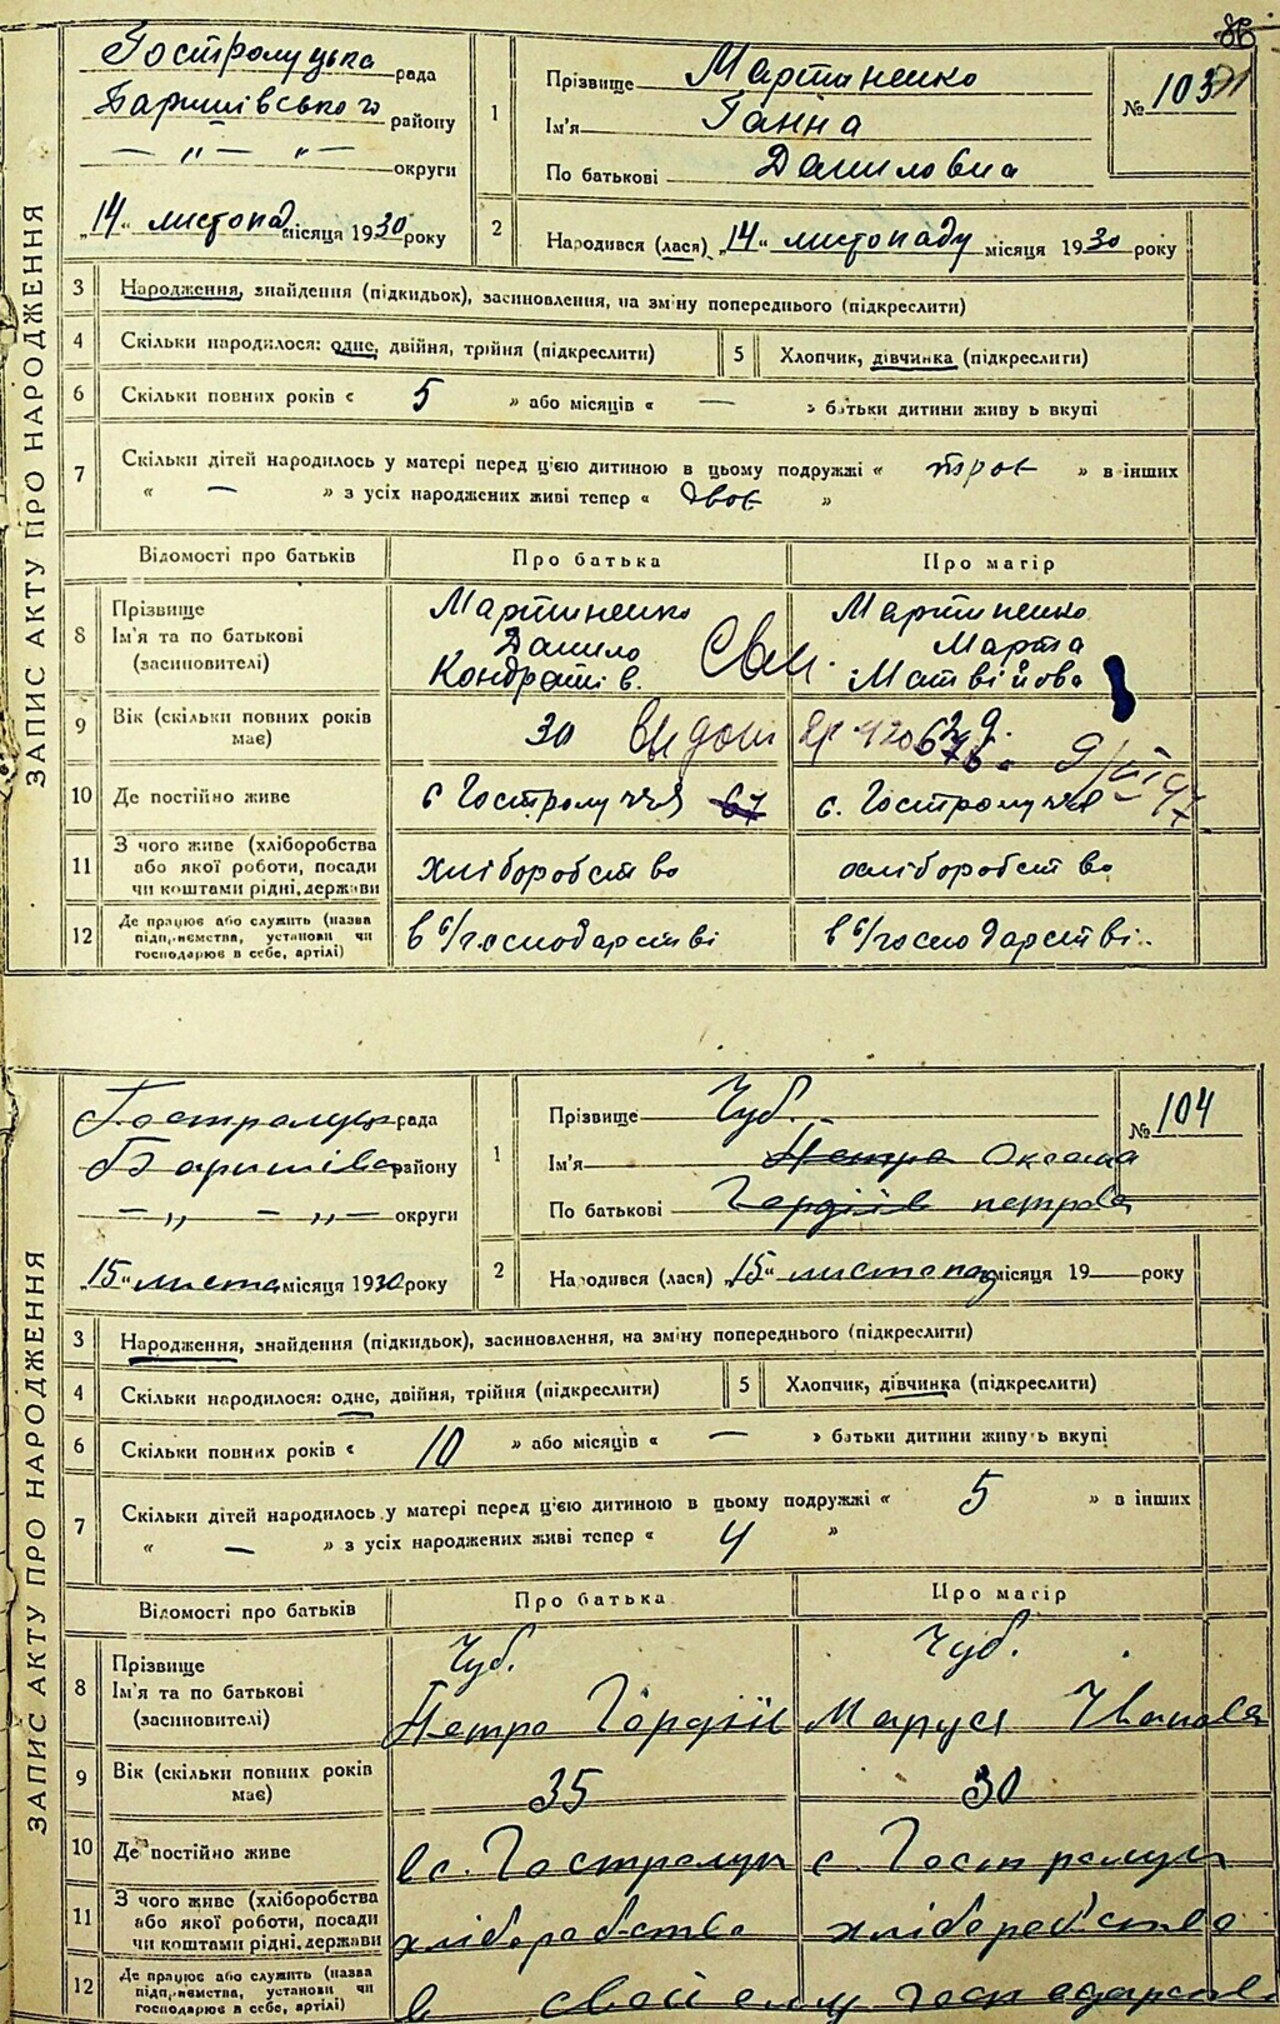 86
ЗАПИС АКТУ ПРО НАРОДЖЕННЯ
Гостролуцька рада
Баришівського району
— „ — „ — округи
„14“ листопад місяця 1930 року
1
Прізвище Мартиненко
Ім'я Ганна
По батькові Даниловна
№ 103
2
Народився (лася) „14“ листопаду місяця 1930 року
3 Народження, знайдення (підкидьок), засиновлення, на зміну попереднього (підкреслити)
4 Скільки народилося: одне, двійня, трійня (підкреслити)
5 Хлопчик, дівчинка (підкреслити)
6 Скільки повних років « 5 » або місяців « — » батьки дитини живуть вкупі
7 Скільки дітей народилось у матері перед ц'єю дитиною в цьому подружжі « троє » в інших
« — » з усіх народжених живі тепер « двоє »
Відомості про батьків Про батька Про матір
8 Прізвище Ім'я та по батькові (засиновителі)
Мартиненко Данило Кондратів.
Мартиненко Марта Матвійова
Свид.
9 Вік (скільки повних років має) 30 29.
10 Де постійно живе с Гостролуччя 67 с. Гостролуччя
11 З чого живе (хліборобства або якої роботи, посади чи коштами рідні, держави хліборобство хліборобство
12 Де працює або служить (назва підприємства, установи чи господарює в себе, артілі) в с/господарстві в с/господарстві..
ЗАПИС АКТУ ПРО НАРОДЖЕННЯ
Гостролуц рада
Баришівс району
— „ — „ — округи
„15“ листопа місяця 1930 року
1
Прізвище Чуб.
Ім'я Петро Оксана
По батькові Гордіїв петрова
№ 104
2
Народився (лася) „15“ листопад місяця 19— року
3 Народження, знайдення (підкидьок), засиновлення, на зміну попереднього (підкреслити)
4 Скільки народилося: одне, двійня, трійня (підкреслити)
5 Хлопчик, дівчинка (підкреслити)
6 Скільки повних років « 10 » або місяців « — » батьки дитини живуть вкупі
7 Скільки дітей народилось у матері перед ц'єю дитиною в цьому подружжі « 5 » в інших
« — » з усіх народжених живі тепер « 4 »
Відомості про батьків Про батька Про матір
8 Прізвище Ім'я та по батькові (засиновителі)
Чуб. Петро Гордіїв
Чуб. Маруся Іванова
9 Вік (скільки повних років має) 35 30
10 Де постійно живе в с. Гостролуч с. Гостролуч
11 З чого живе (хліборобства або якої роботи, посади чи коштами рідні, держави хліборобство хліборобство
12 Де працює або служить (назва підприємства, установи чи господарює в себе, артілі) в своєму господарстві